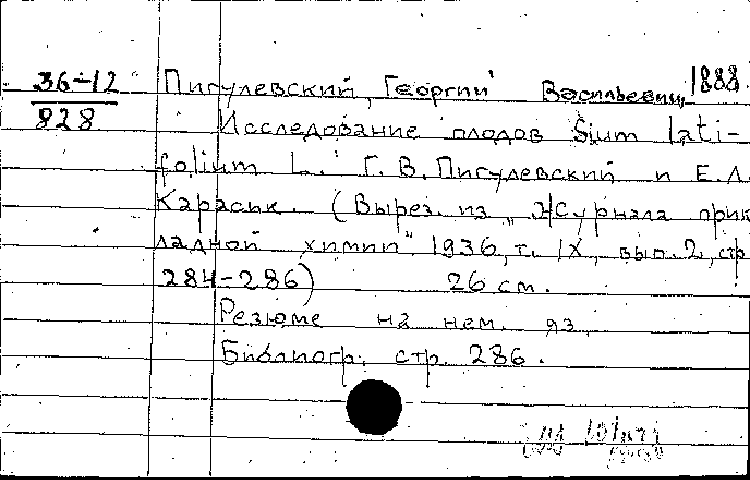 36-12 Пигулевский, Георгий Васильевич, 1888
828 Исследование плодов Sium lati-
folium L. Г. В. Пигулевский и Е. Л.
Карасик. (Вырез. из „Журнала прик
ладной химии" 1936, т. IX, вып. 2, стр
284-286) 26 см.
Резюме на нем. яз.
Библиогр. стр. 286.